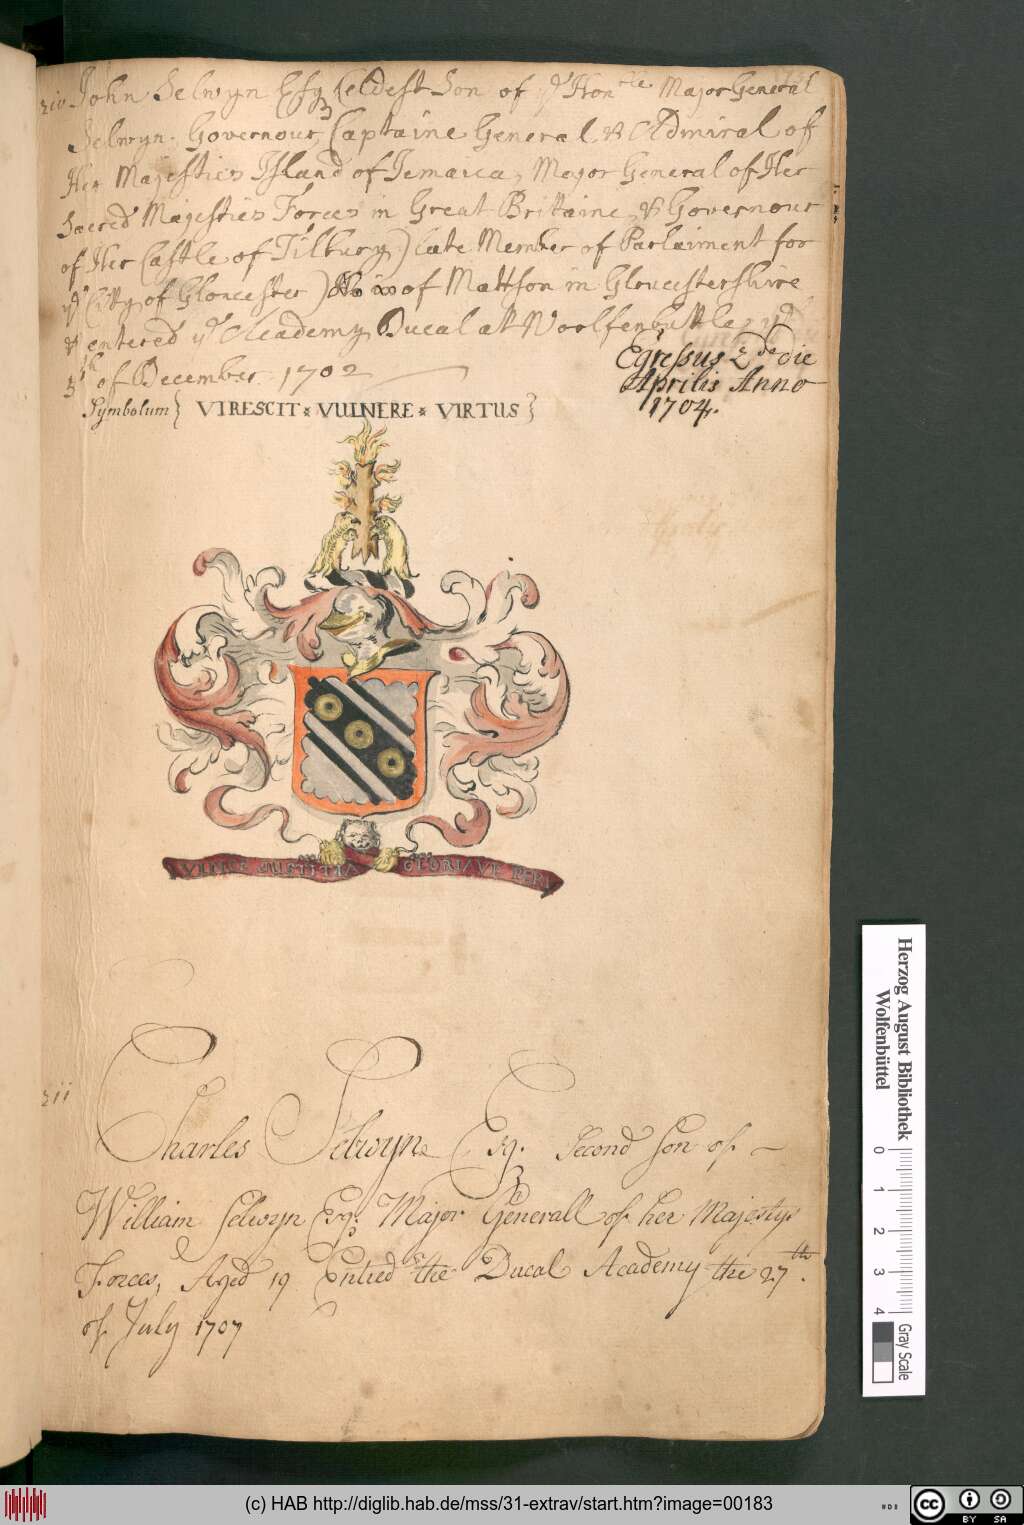 John Selwyn Esq (eldest Son of yᵉ Honᵇˡᵉ Major General
Selwyn. Governour, Captaine General & Admiral of
Her Majesties Island of Jemaica, Mayor General of Her
Sacred Majesties Forces in Great Brittaine, & Governour
of Her Castle of Tilbury,) late Member of Parlaiment for
yᵉ City of Gloucester) of Mattson in Gloucestershire
& entered yᵉ Academy Ducal att Woolfenbuttle yᵉ
3ᵗʰ of December 1702
Egressus 2ᵈᵉ die
Aprilis Anno
1704.
Symbolum} VIRESCIT * VULNERE * VIRTUS }
JUSTITIA
211
Charles Selwyn Esq. Second Son of
William Selwyn Esq: Major Generall of her Majestys
Forces, Aged 19 Entred the Ducal Academy the 27ᵗʰ.
of July 1707
Herzog August Bibliothek
Wolfenbüttel
0 1 2 3 4
Gray Scale
(c) HAB http://diglib.hab.de/mss/31-extrav/start.htm?image=00183
cc BY SA